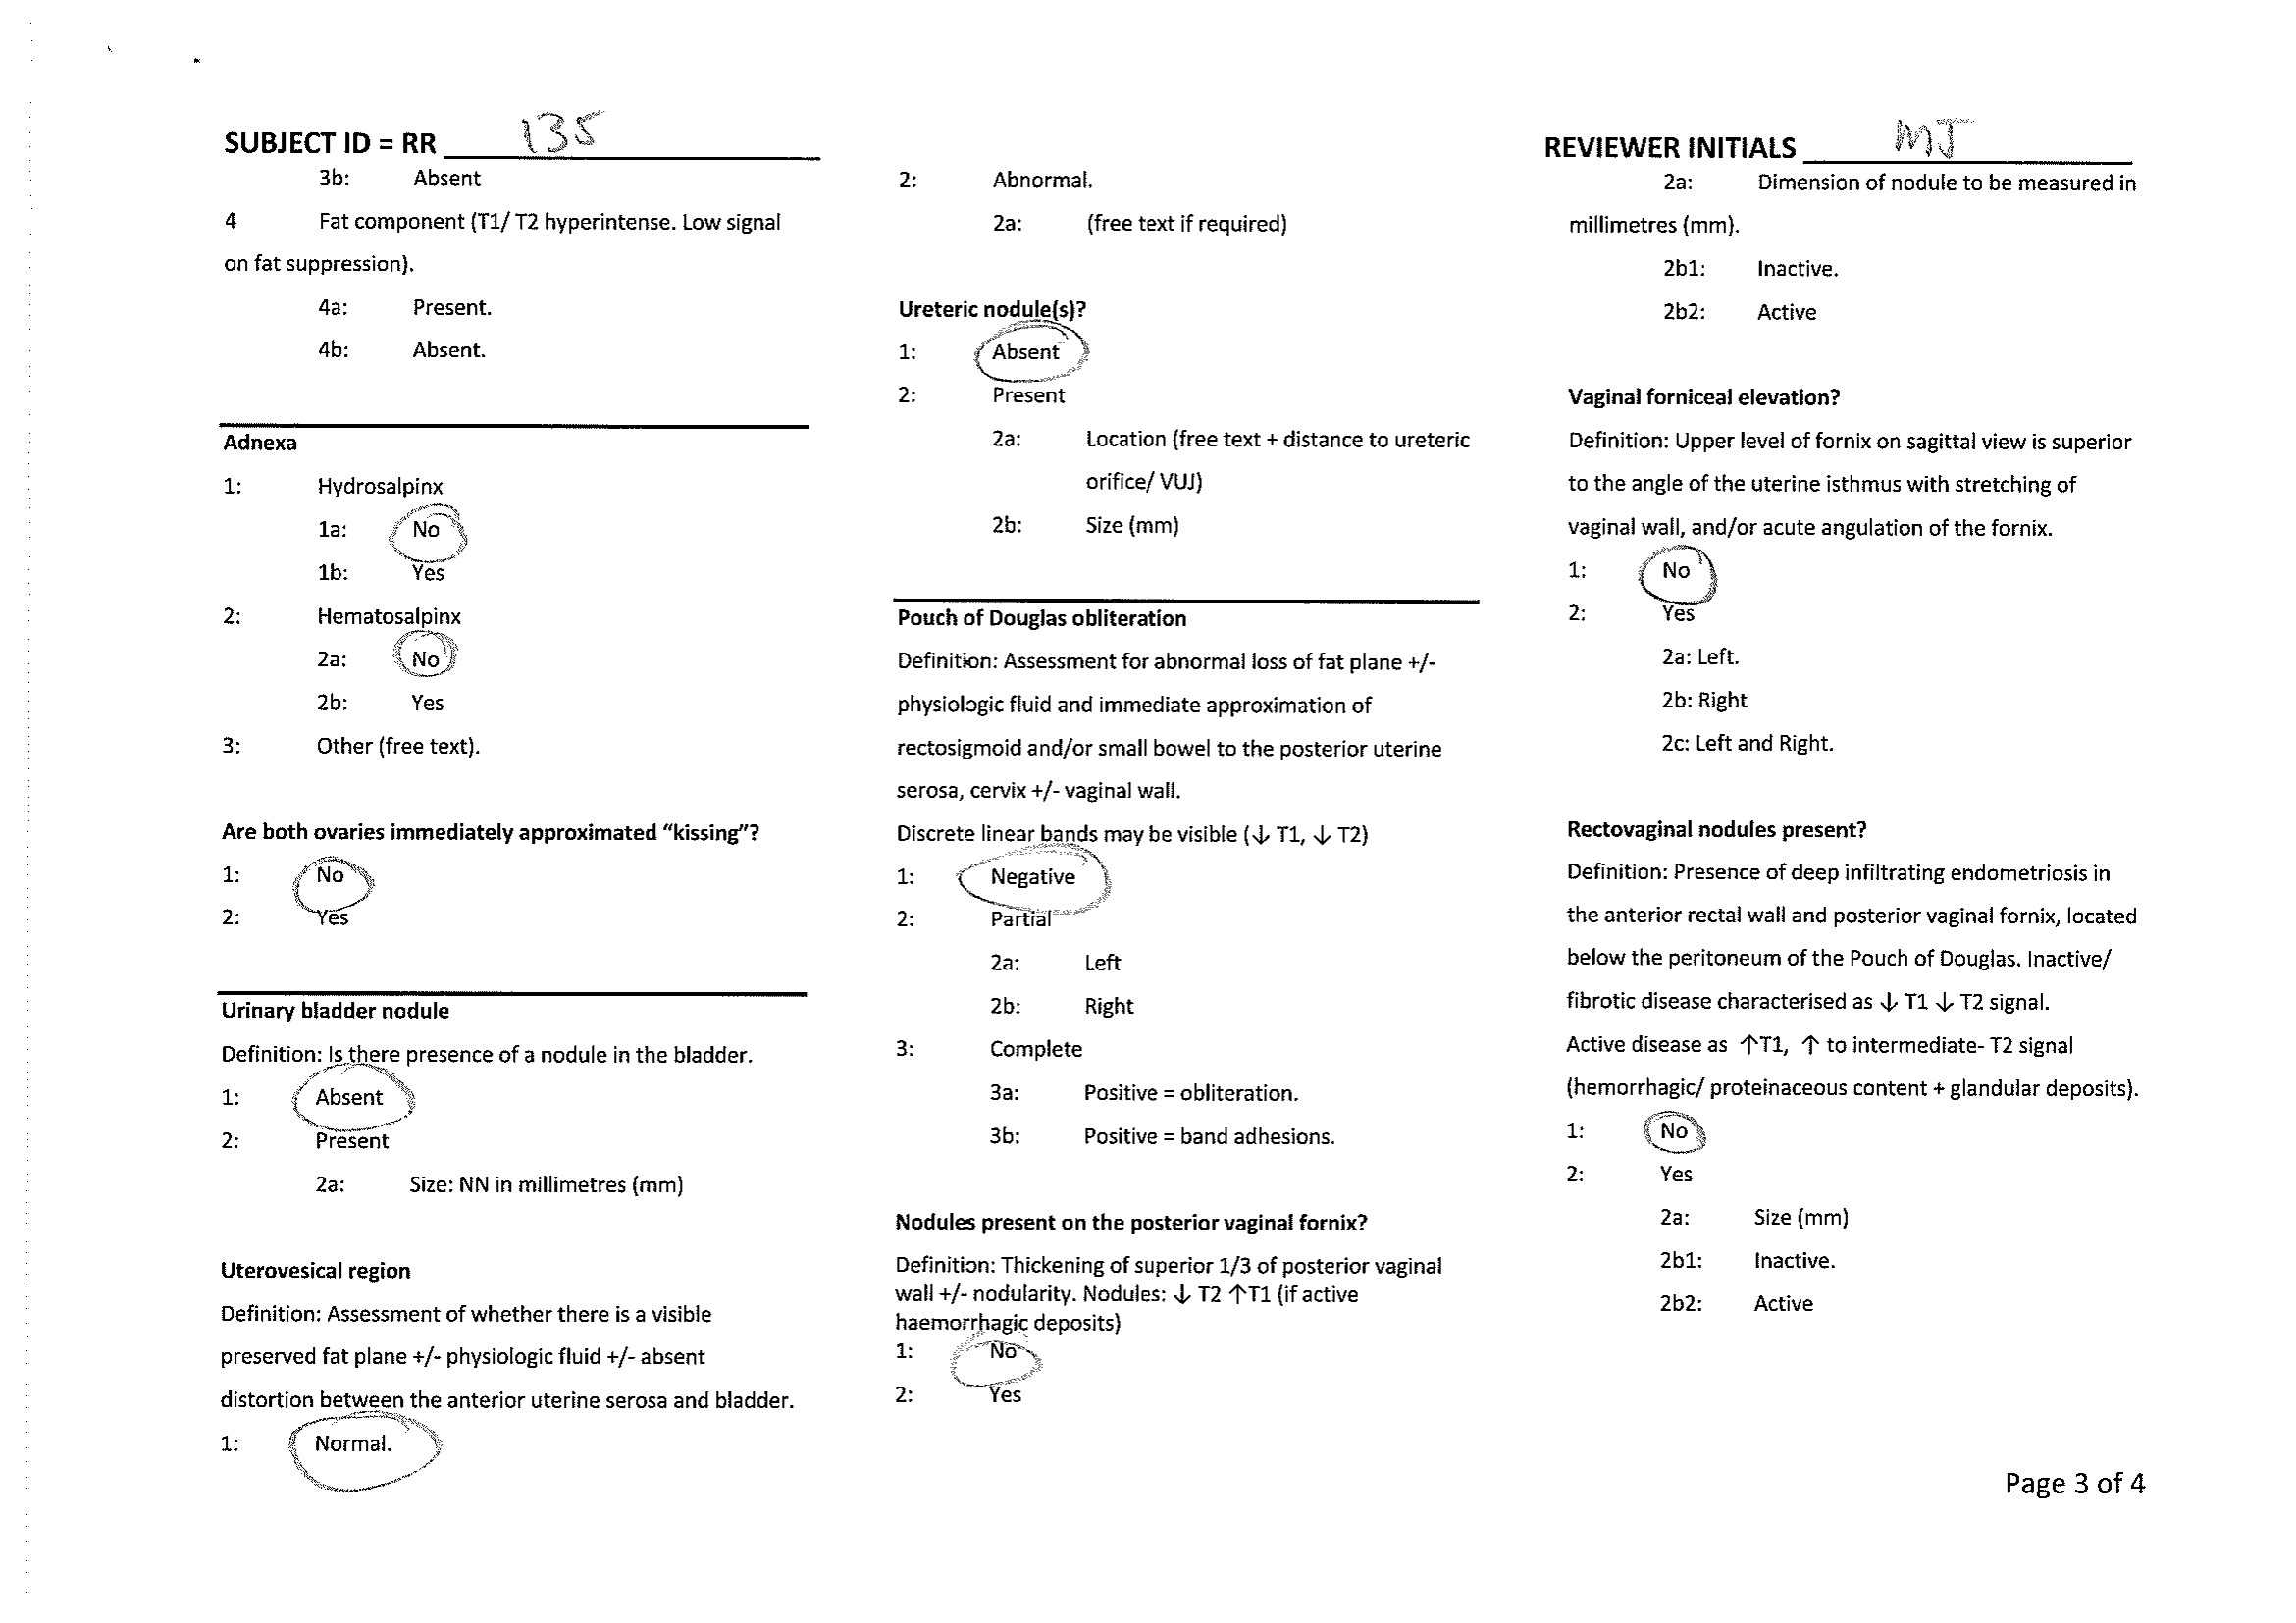 SUBJECT ID = RR 135
3b: Absent
4 Fat component (T1/ T2 hyperintense. Low signal
on fat suppression).
4a: Present.
4b: Absent.
Adnexa
1: Hydrosalpinx
1a: No
1b: Yes
2: Hematosalpinx
2a: No
2b: Yes
3: Other (free text).
Are both ovaries immediately approximated “kissing”?
1: No
2: Yes
Urinary bladder nodule
Definition: Is there presence of a nodule in the bladder.
1: Absent
2: Present
2a: Size: NN in millimetres (mm)
Uterovesical region
Definition: Assessment of whether there is a visible
preserved fat plane +/- physiologic fluid +/- absent
distortion between the anterior uterine serosa and bladder.
1: Normal.
2: Abnormal.
2a: (free text if required)
Ureteric nodule(s)?
1: Absent
2: Present
2a: Location (free text + distance to ureteric
orifice/ VUJ)
2b: Size (mm)
Pouch of Douglas obliteration
Definition: Assessment for abnormal loss of fat plane +/-
physiologic fluid and immediate approximation of
rectosigmoid and/or small bowel to the posterior uterine
serosa, cervix +/- vaginal wall.
Discrete linear bands may be visible (↓ T1, ↓ T2)
1: Negative
2: Partial
2a: Left
2b: Right
3: Complete
3a: Positive = obliteration.
3b: Positive = band adhesions.
Nodules present on the posterior vaginal fornix?
Definition: Thickening of superior 1/3 of posterior vaginal
wall +/- nodularity. Nodules: ↓ T2 ↑T1 (if active
haemorrhagic deposits)
1: No
2: Yes
REVIEWER INITIALS MJ
2a: Dimension of nodule to be measured in
millimetres (mm).
2b1: Inactive.
2b2: Active
Vaginal forniceal elevation?
Definition: Upper level of fornix on sagittal view is superior
to the angle of the uterine isthmus with stretching of
vaginal wall, and/or acute angulation of the fornix.
1: No
2: Yes
2a: Left.
2b: Right
2c: Left and Right.
Rectovaginal nodules present?
Definition: Presence of deep infiltrating endometriosis in
the anterior rectal wall and posterior vaginal fornix, located
below the peritoneum of the Pouch of Douglas. Inactive/
fibrotic disease characterised as ↓ T1 ↓ T2 signal.
Active disease as ↑T1, ↑ to intermediate- T2 signal
(hemorrhagic/ proteinaceous content + glandular deposits).
1: No
2: Yes
2a: Size (mm)
2b1: Inactive.
2b2: Active
Page 3 of 4